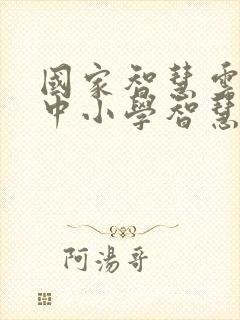 國家智慧電
中小學智慧
阿湯哥